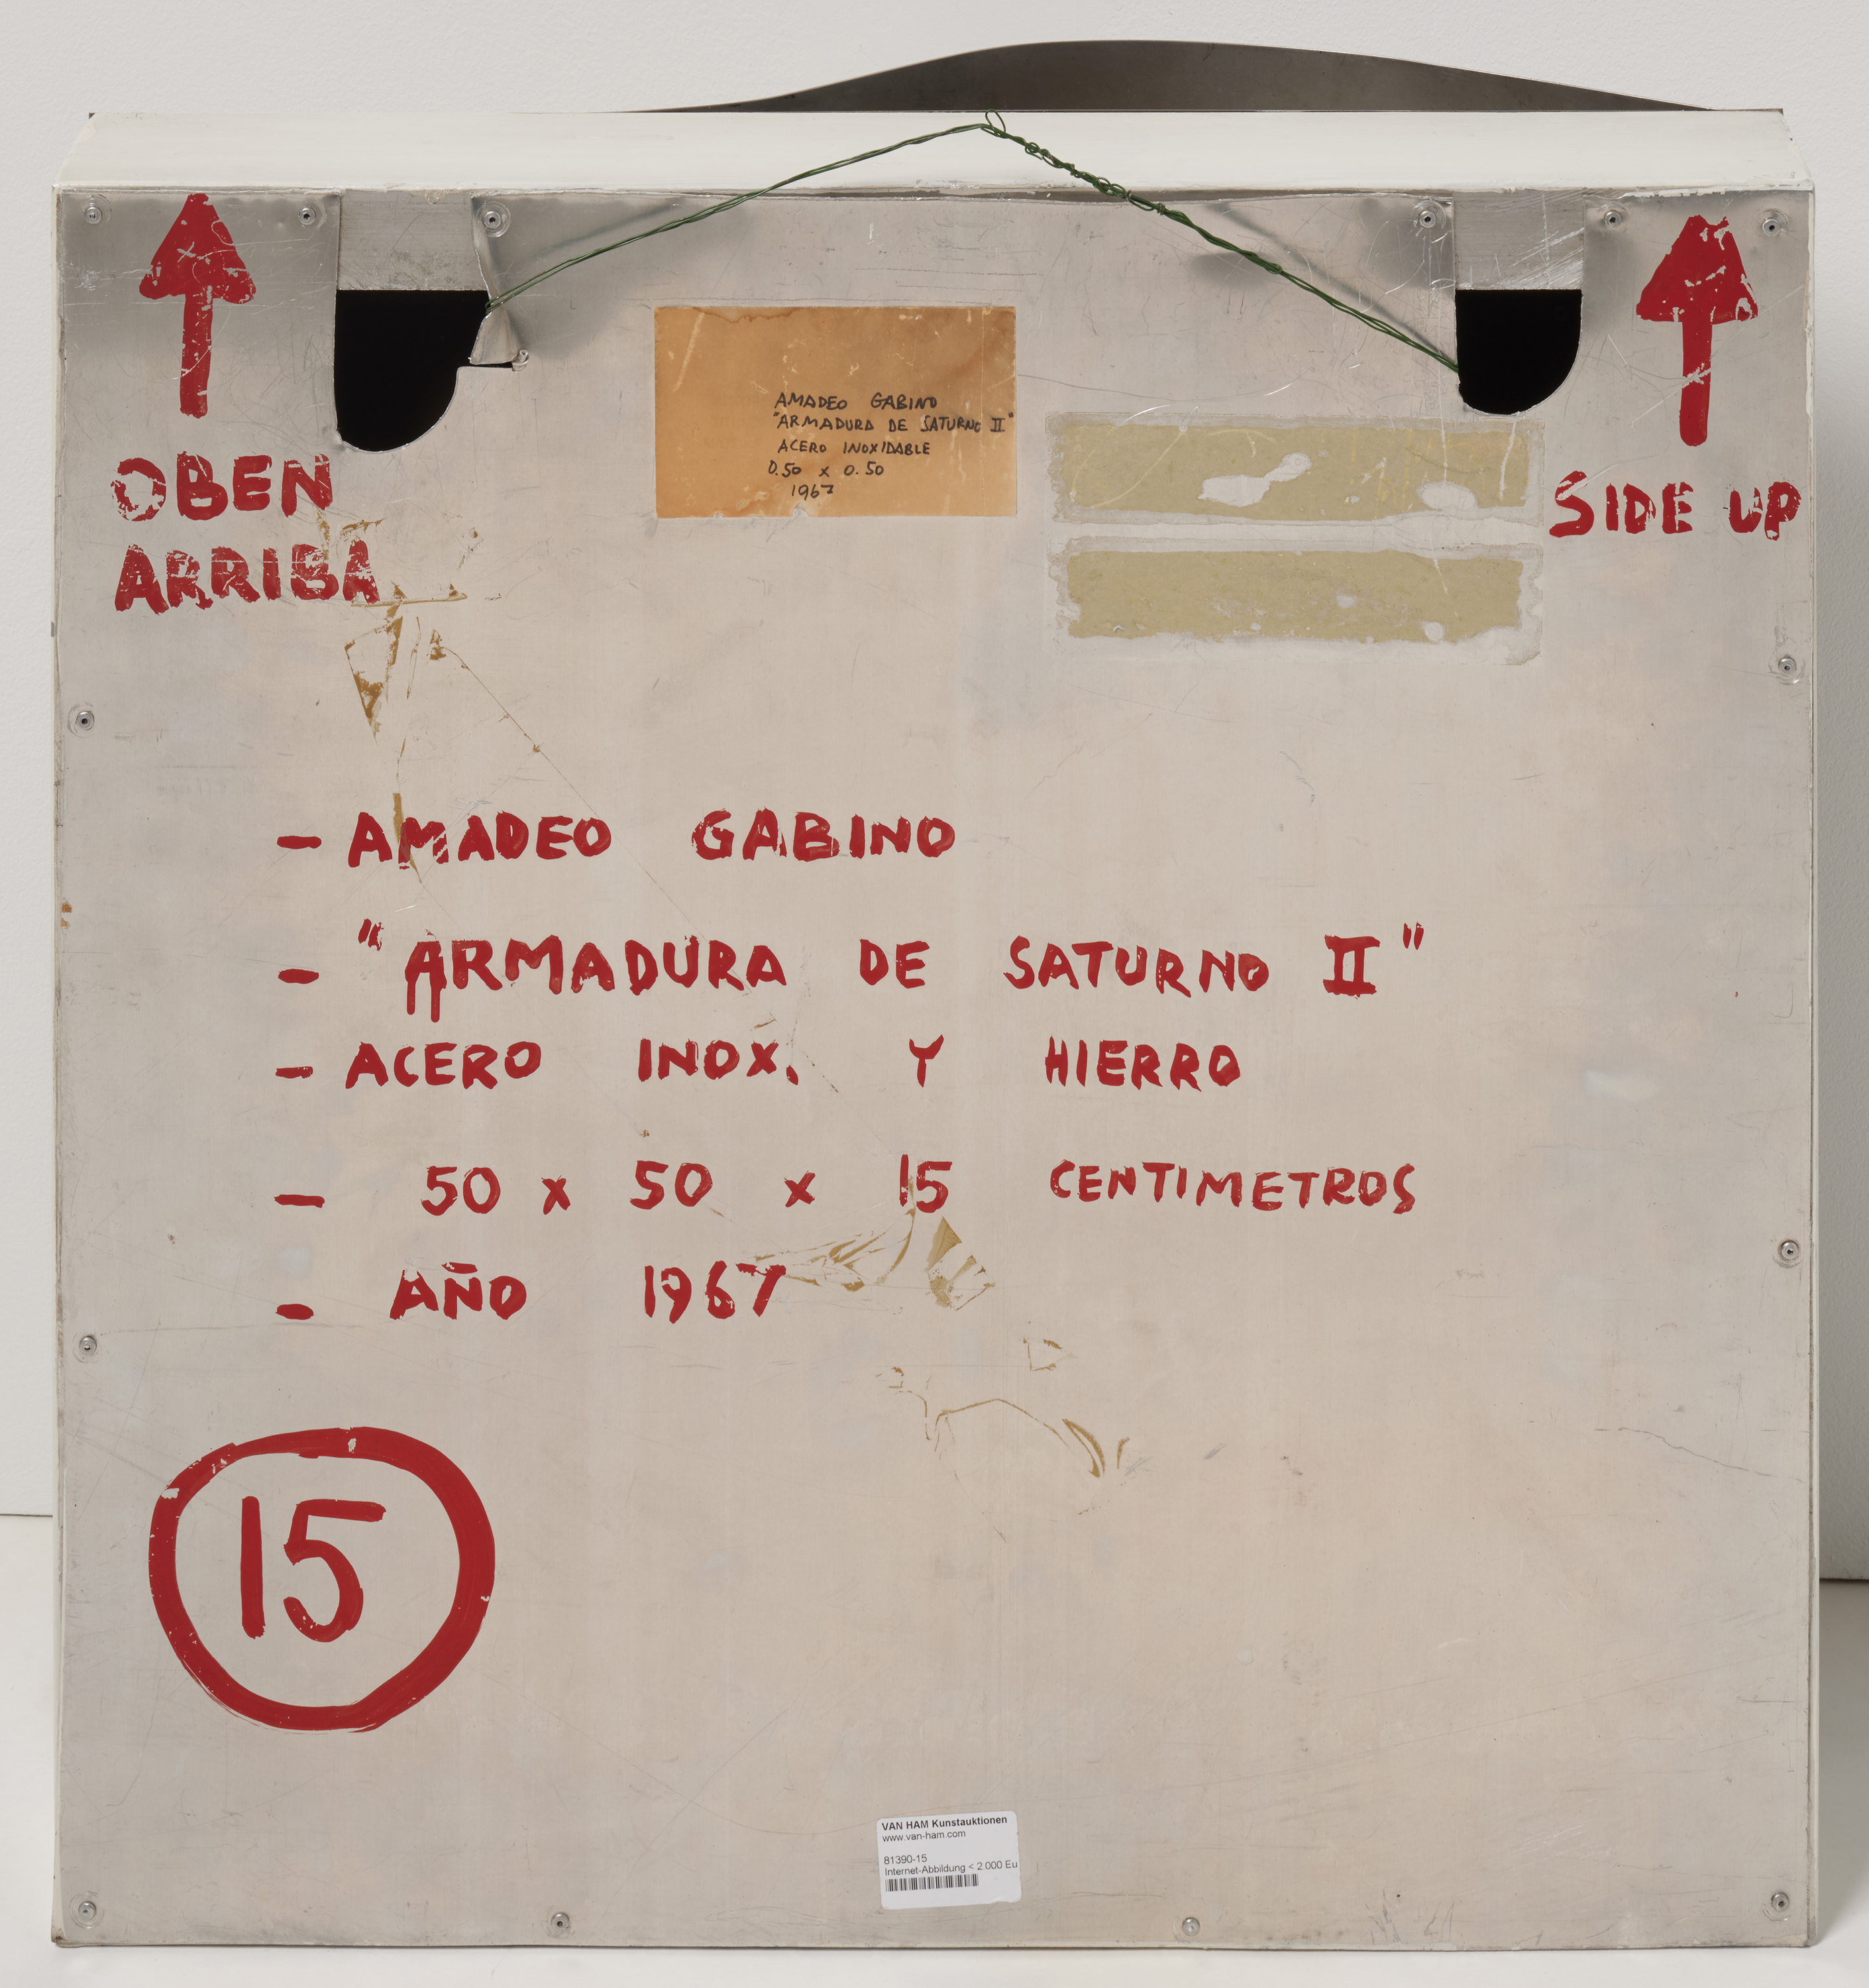 OBEN
ARRIBA
SIDE UP
AMADEO GABINO
"ARMADURA DE SATURNO II"
ACERO INOXIDABLE
0.50 x 0.50
1967
- AMADEO GABINO
- "ARMADURA DE SATURNO II"
- ACERO INOX. Y HIERRO
- 50 x 50 x 15 CENTIMETROS
- AÑO 1967
15
VAN HAM Kunstauktionen
www.van-ham.com
81390-15
Internet-Abbildung < 2.000 Eu